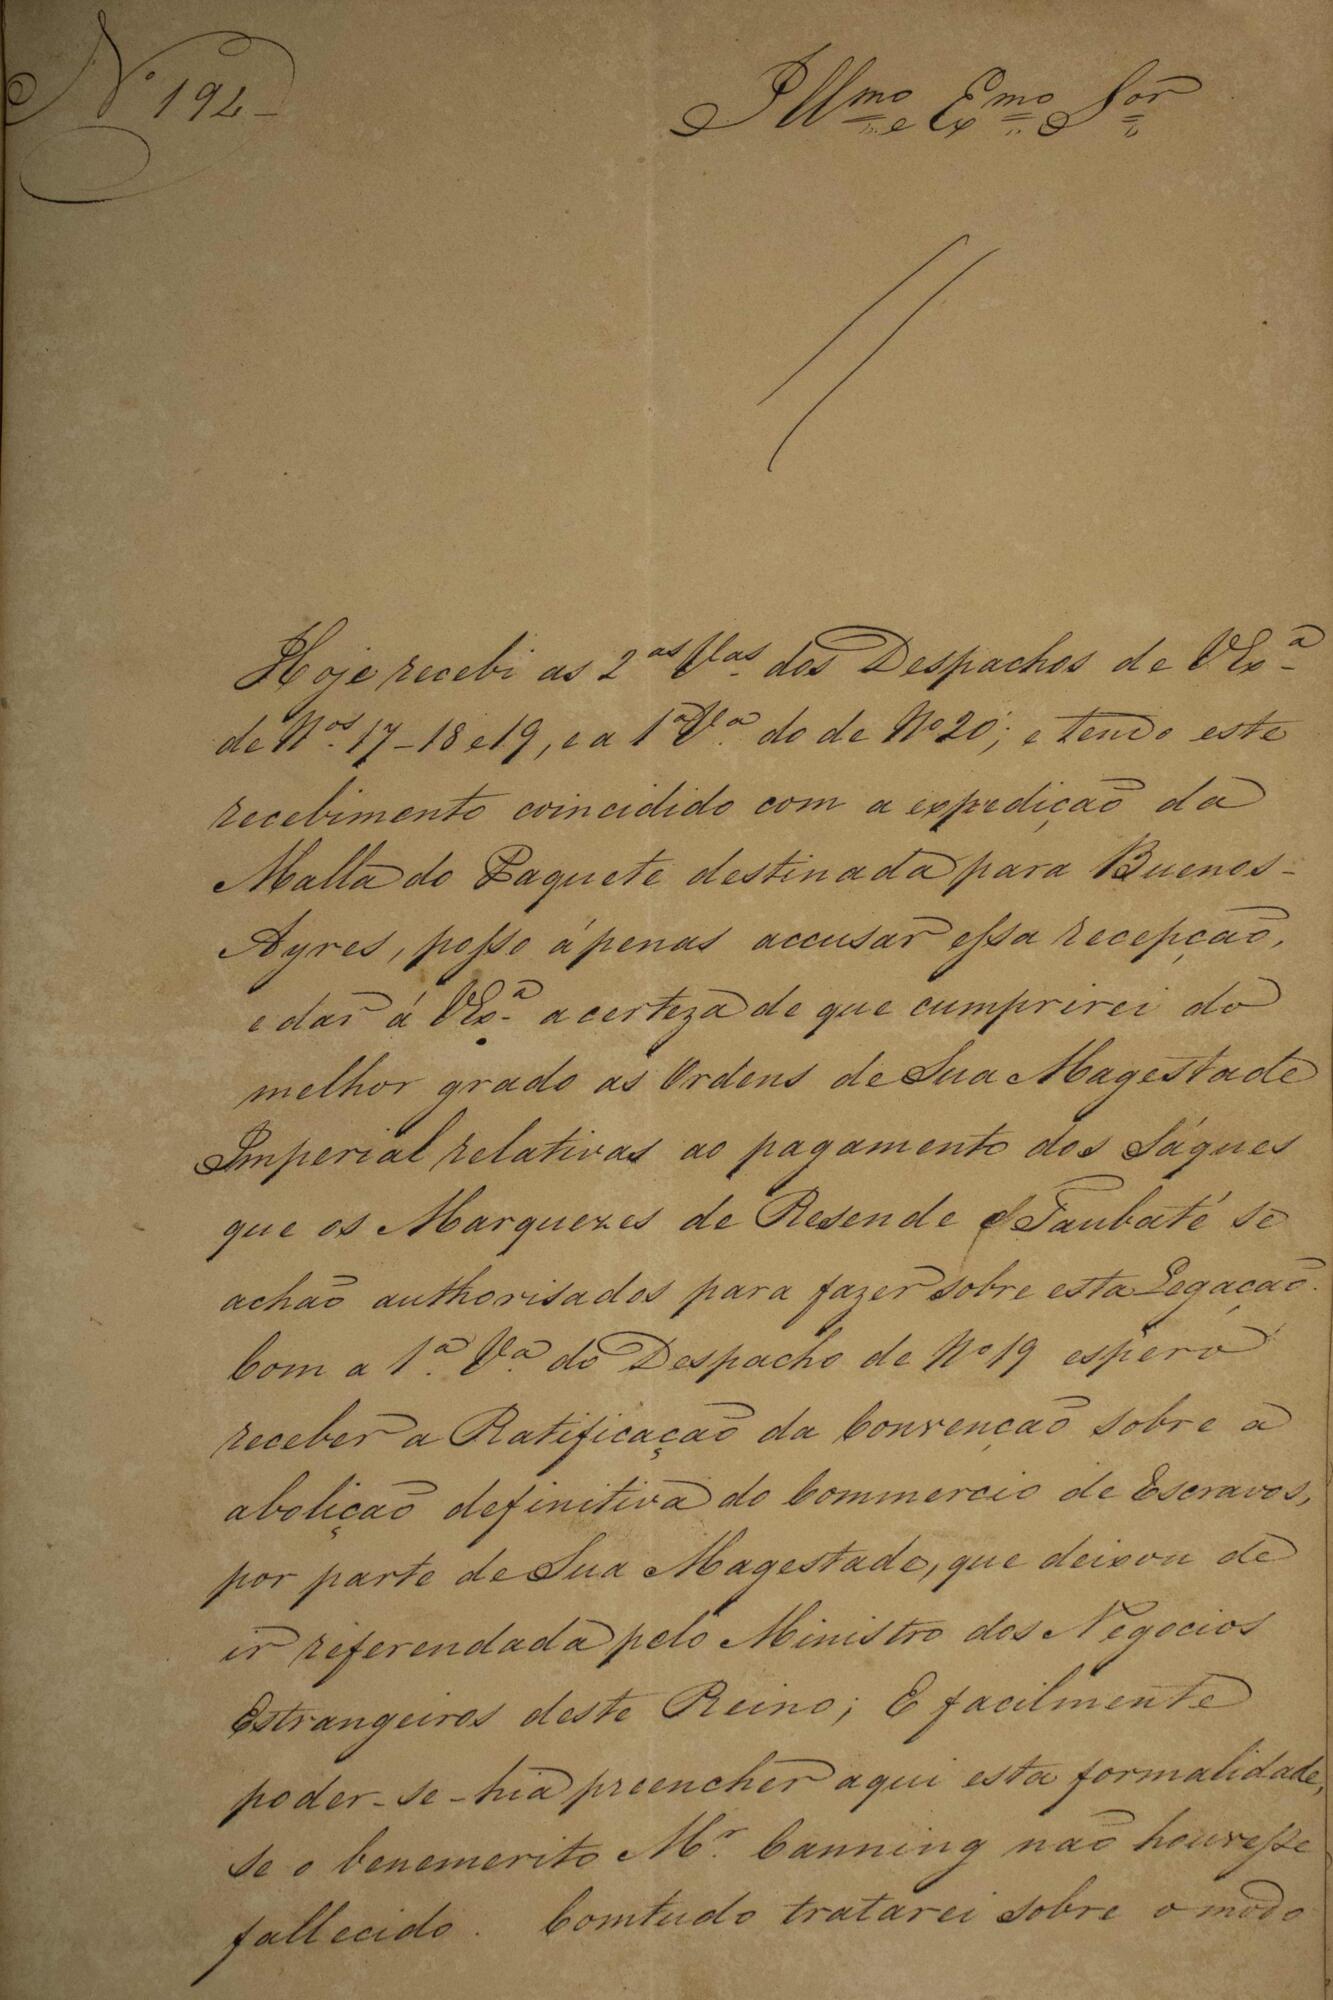 Nº 194
Illmo e Exmo Sor
Hoje recebi as 2as Vas dos Despachos de VExª
de Nos 17-18 e 19, e a 1ª Vª do de Nº 20; e tendo este
recebimento coincidido com a expedição da
Malla do Paquete destinada para Buenos-
Ayres, posso ápenas accusar essa recepção,
e dar á VExª a certeza de que cumprirei do
melhor grado as Ordens de Sua Magestade
Imperial relativas ao pagamento dos Sáques
que os Marquezes de Resende e Taubaté se
achão authorisados para fazer sobre esta Legação.
Com a 1ª Vª do Despacho de Nº 19 espero
receber a Ratificação da Convenção sobre a
abolição definitiva do Commercio de Escravos,
por parte de Sua Magestade, que deixou de
ir referendada pelo Ministro dos Negocios
Estrangeiros deste Reino; E facilmente
poder-se-hia preencher aqui esta formalidade,
se o benemerito Mr. Canning não houvesse
fallecido. Comtudo tratarei sobre o modo